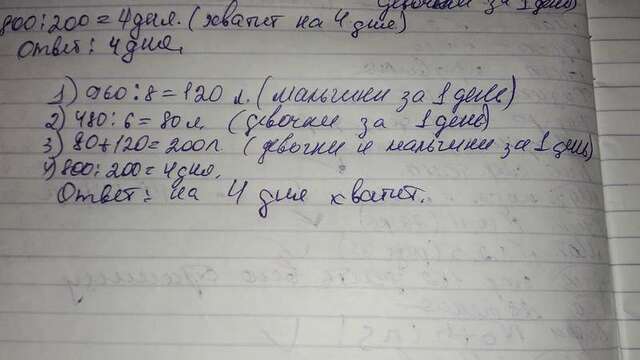 800:200=4дня. (хватит на 4 дня) девочки за 1 день)
Ответ: 4 дня.
1) 960:8=120 л. (мальчики за 1 день)
2) 480:6=80 л. (девочки за 1 день)
3) 80+120=200л. (девочки и мальчики за 1 день)
4) 800:200=4дня.
Ответ: на 4 дня хватит.